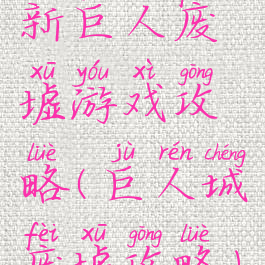 新巨人废
xū yóu xì gōng
墟游戏攻
lüè jù rén chéng
略(巨人城
fèi xū gōng lüè
废墟攻略)